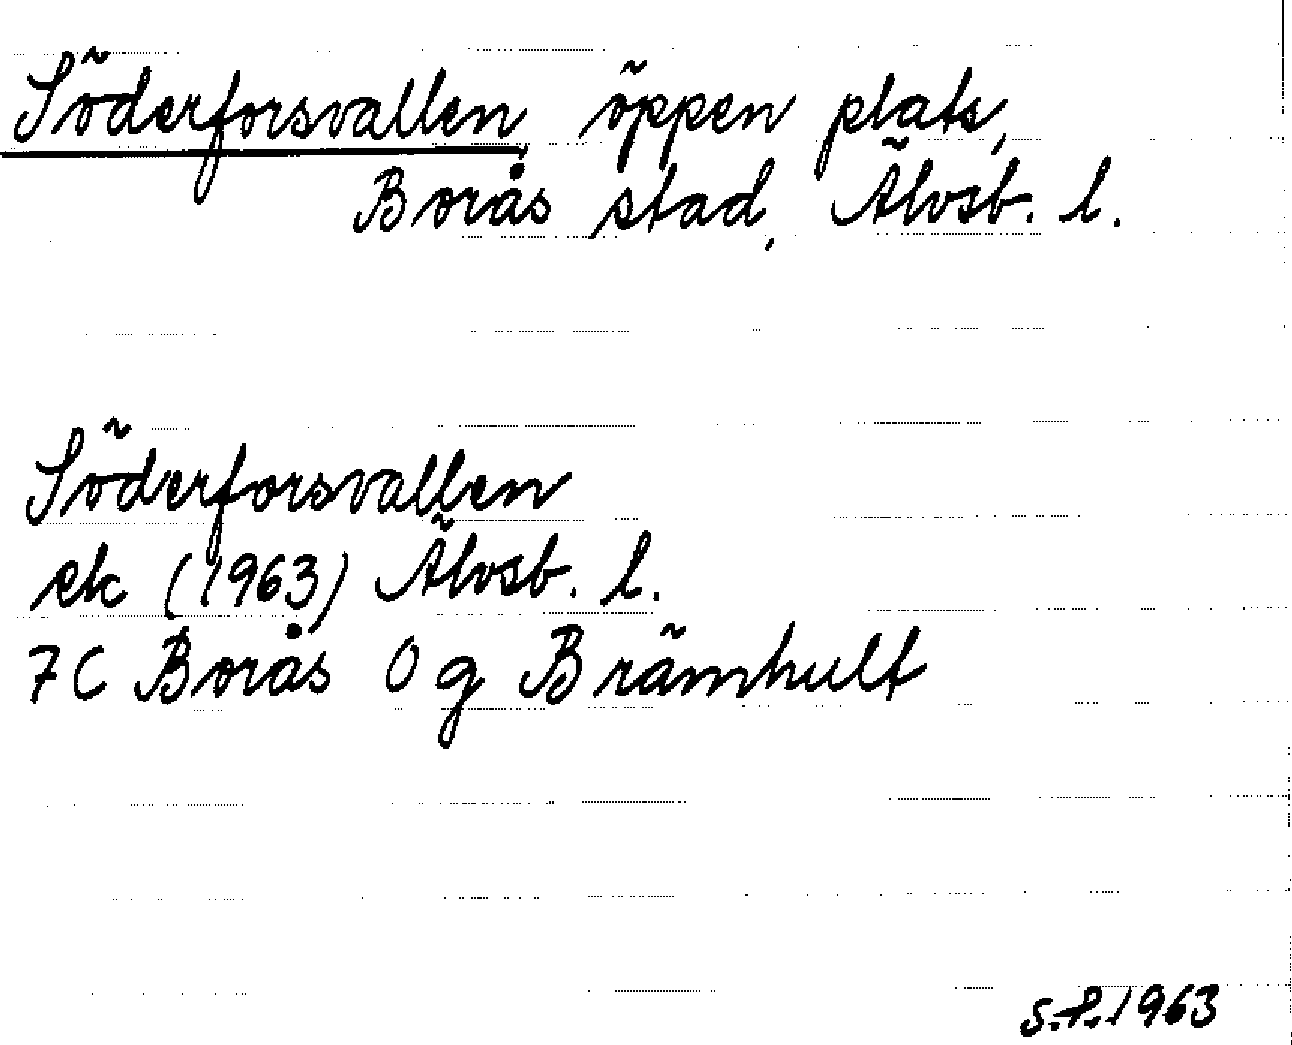 Söderforsvallen öppen plats,
Borås stad, Älvsb. l.
Söderforsvallen
ek (1963) Älvsb. l.
7C Borås 0g Brämhult
S.P. 1963